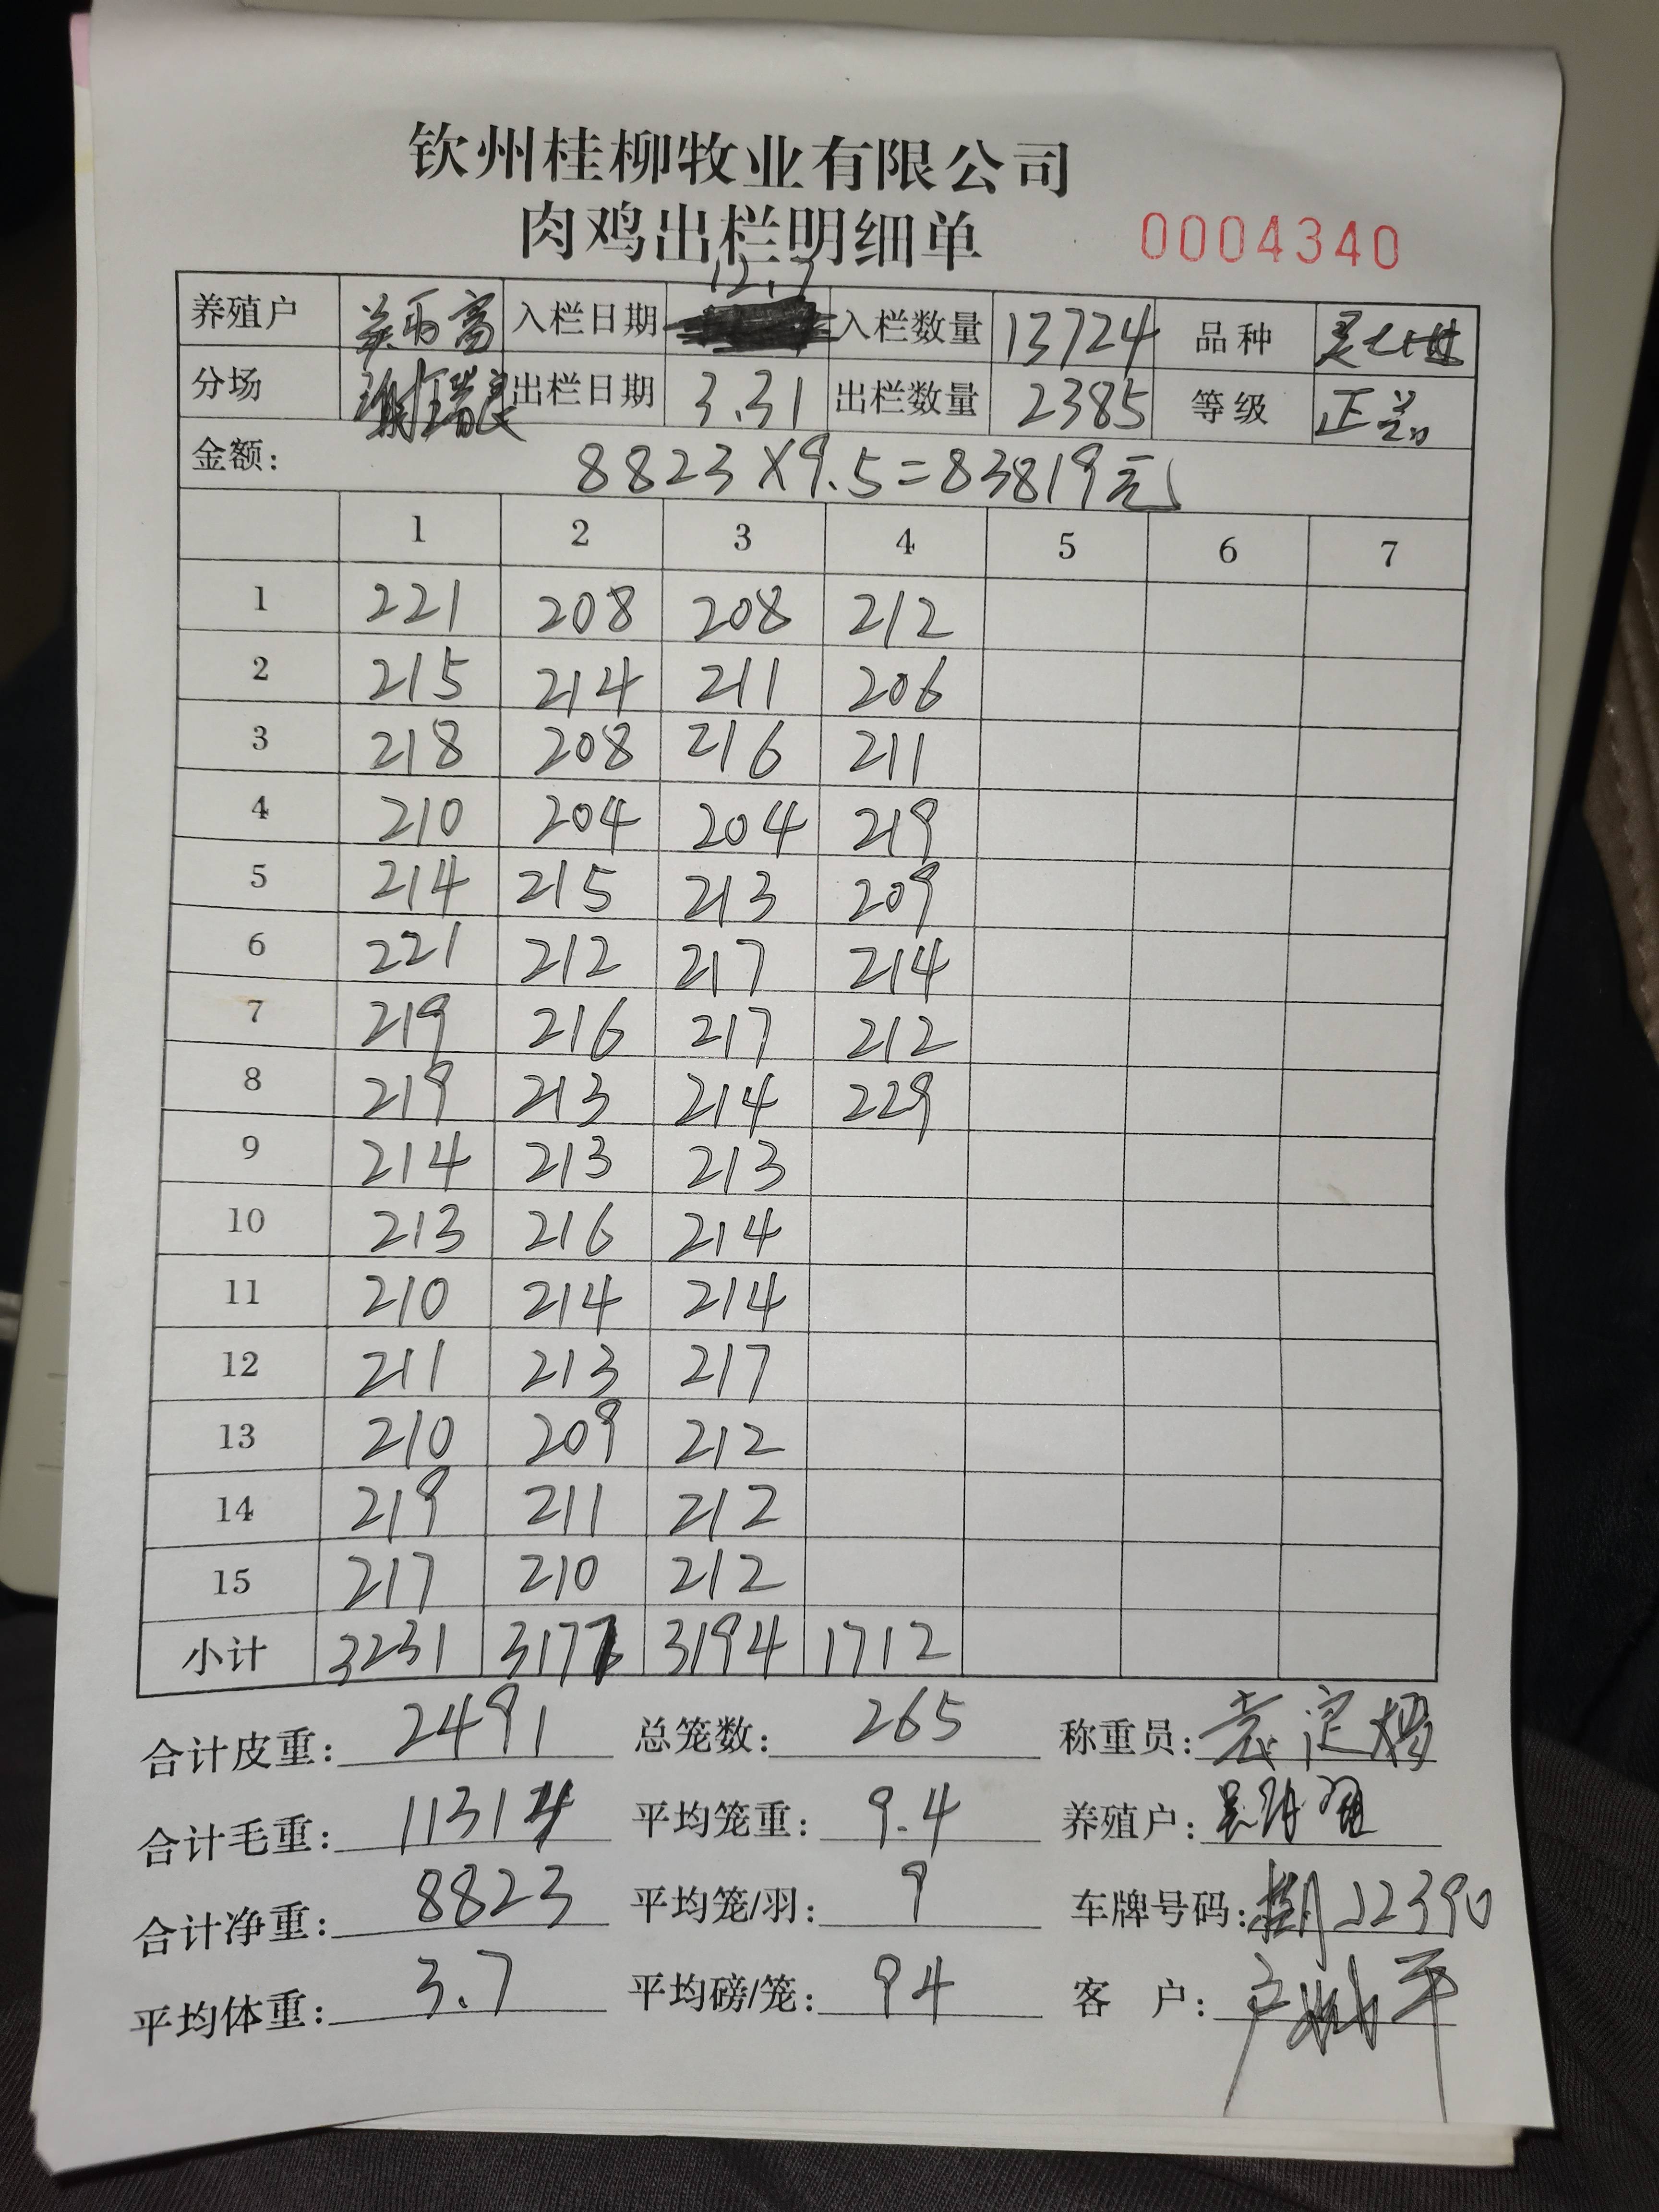 钦州桂柳牧业有限公司
肉鸡出栏明细单 0004340
12.7
养殖户 入栏日期 入栏数量 13724 品种
分场 谢瑞良 出栏日期 3.31 出栏数量 2385 等级 正
金额: 8823×9.5=83819元
1 2 3 4 5 6 7
1 221 208 208 212
2 215 214 211 206
3 218 208 216 211
4 210 204 204 219
5 214 215 213 209
6 221 212 217 214
7 219 216 217 212
8 219 213 214 229
9 214 213 213
10 213 216 214
11 210 214 214
12 211 213 217
13 210 209 212
14 219 211 212
15 217 210 212
小计 3231 3177 3194 1712
合计皮重: 2491 总笼数: 265 称重员: 袁定杨
合计毛重: 11314 平均笼重: 9.4 养殖户:
合计净重: 8823 平均笼/羽: 9 车牌号码: J2390
平均体重: 3.7 平均磅/笼: 94 客户: